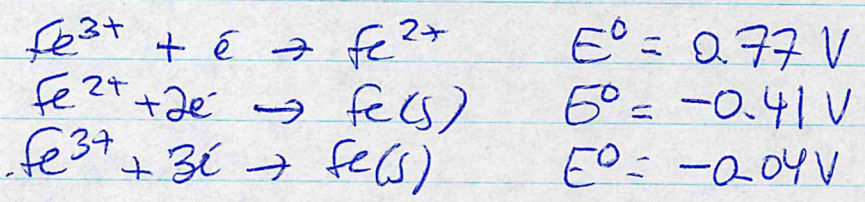 Fe³⁺ + é → Fe²⁺ E⁰ = 0.77 V
Fe²⁺ + 2é → Fe(s) E⁰ = -0.41 V
Fe³⁺ + 3é → Fe(s) E⁰ = -0.04 V